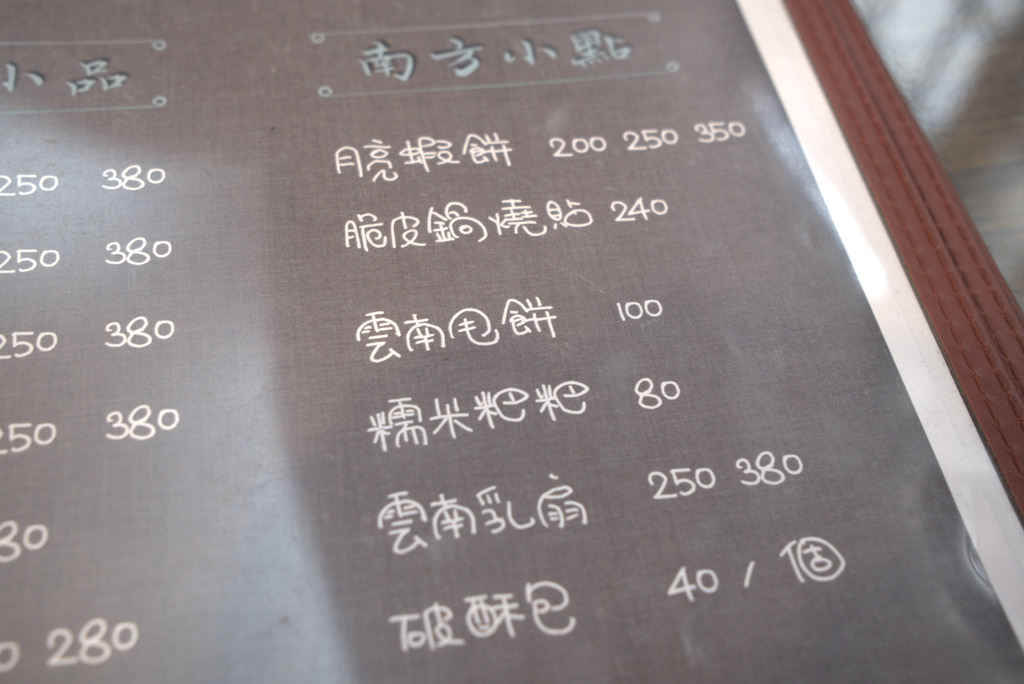 小品
250 380
250 380
250 380
250 380
80
280
南方小點
月亮蝦餅 200 250 350
脆皮鍋燒貼 240
雲南甩餅 100
糯米粑粑 80
雲南乳扇 250 380
破酥包 40 / 個